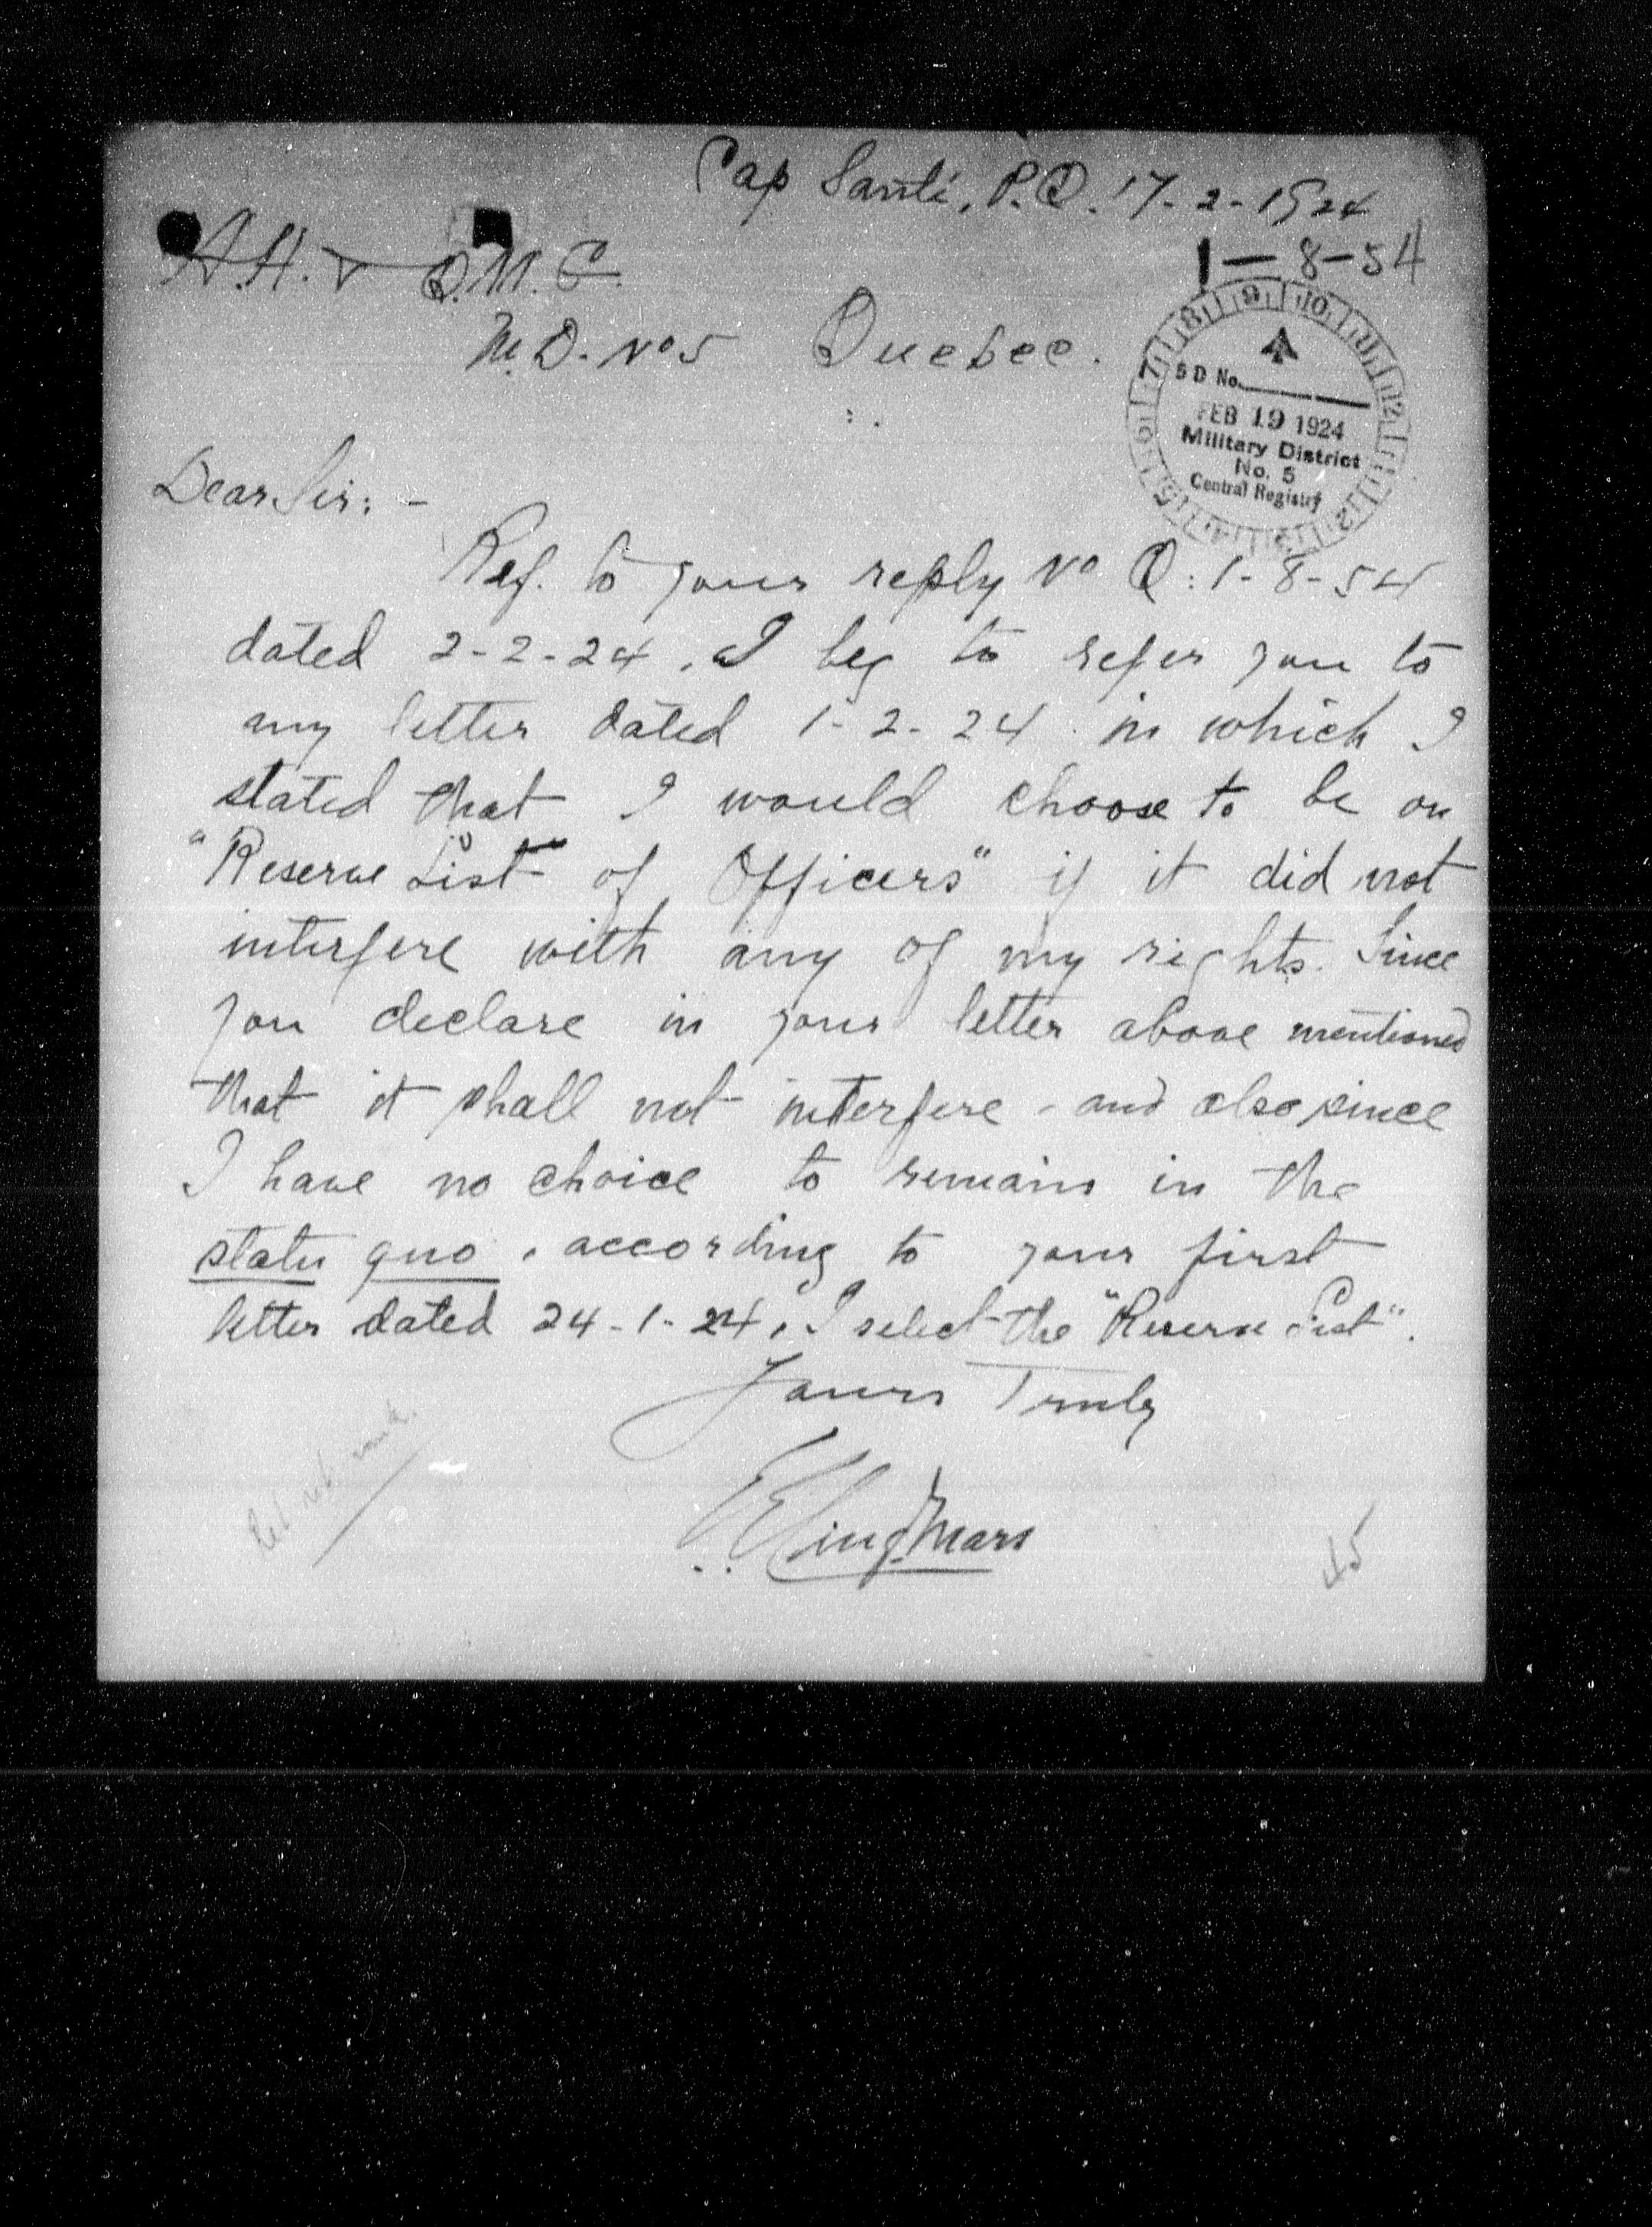 Cap Santé, P.Q. 17-2-1924
1-8-54
A.H. & Q.M.G.
M.D. No 5 Quebec.
8 9 10 11 12
7
6
5 D No.
FEB 19 1924
Military District
No. 5
Central Registry
Dear Sir: -
Ref. to your reply No Q: 1-8-54
dated 2-2-24, I beg to refer you to
my letter dated 1-2-24 in which I
stated that I would choose to be on
"Reserve List of Officers" if it did not
interfere with any of my rights. Since
you declare in your letter above mentioned
that it shall not interfere - and also since
I have no choice to remain in the
statu quo, according to your first
letter dated 24-1-24, I select the "Reserve List".
Yours Truly
45